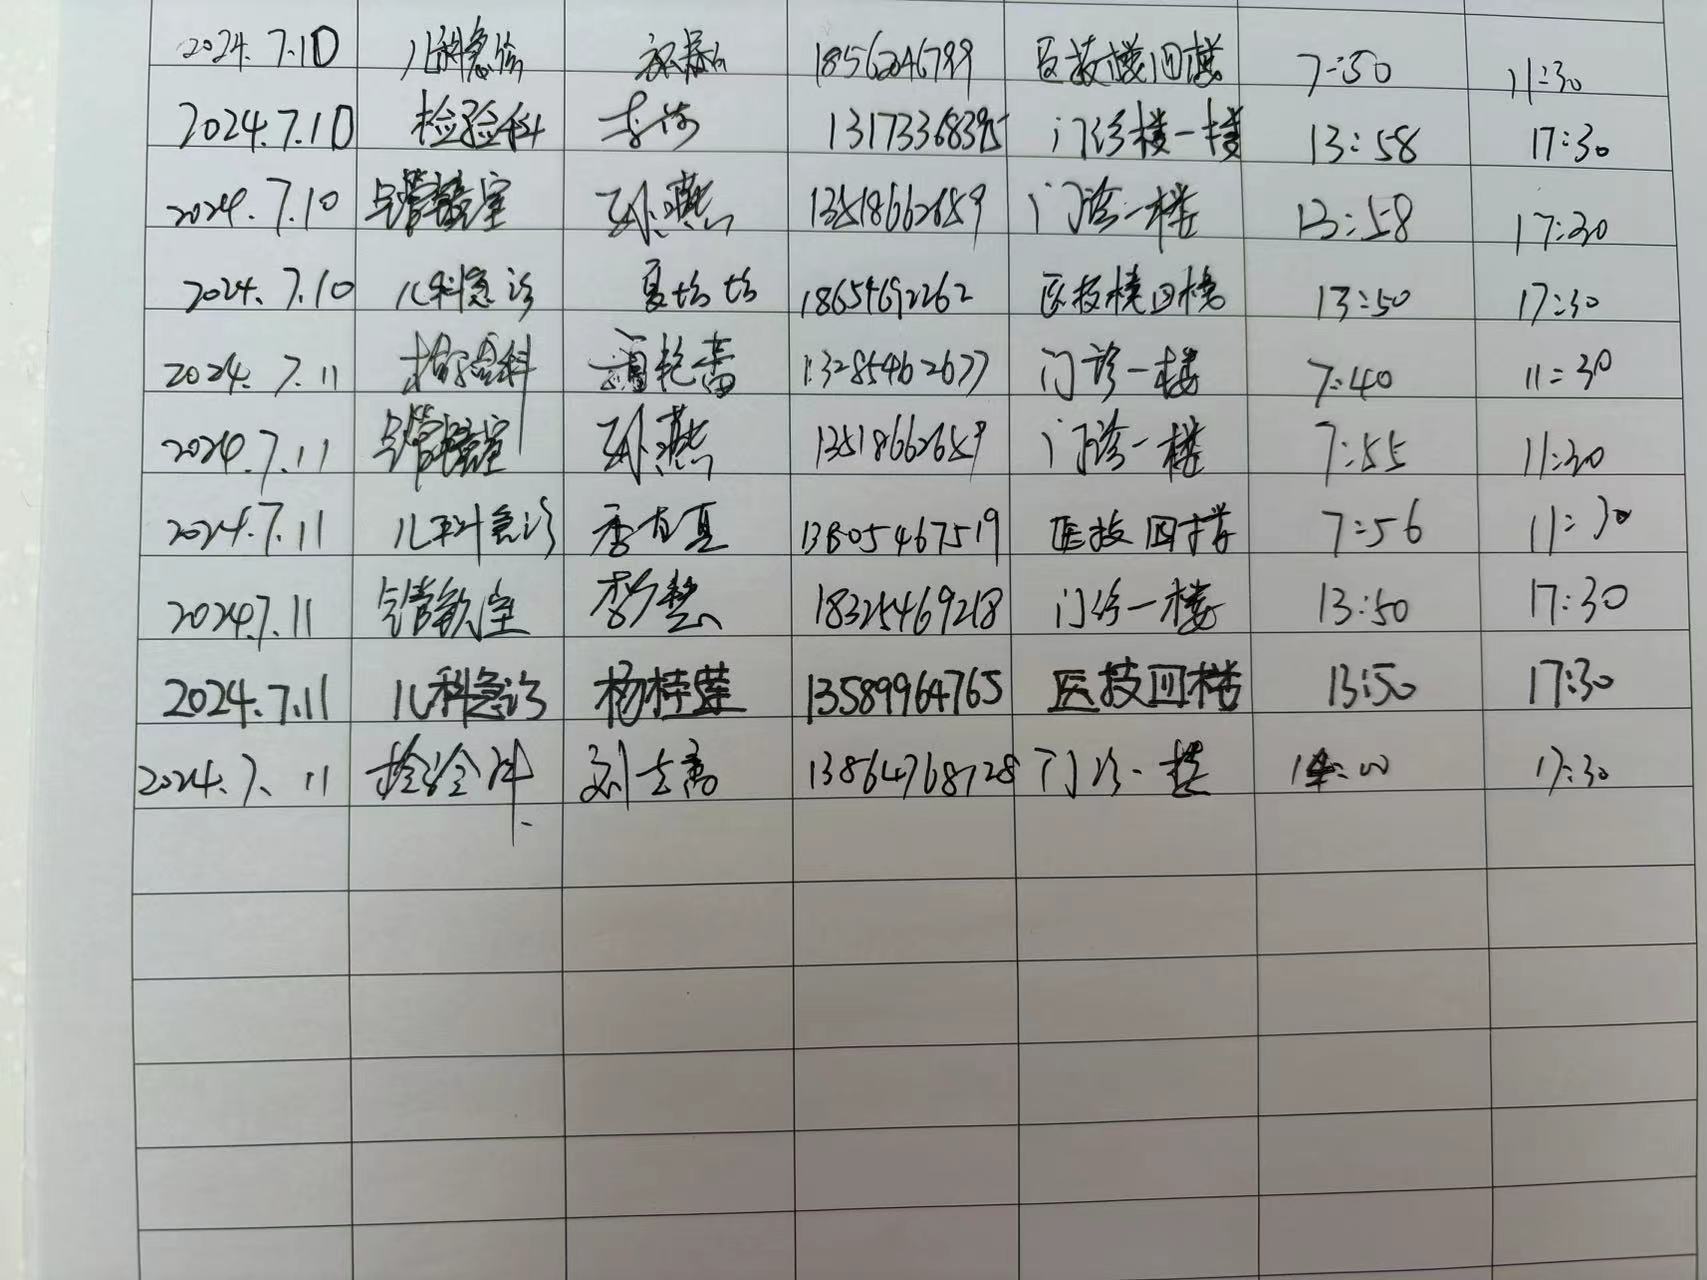 2024.7.10 儿科急诊 18562046799 医技楼四楼 7:50 11:30
2024.7.10 检验科 李 13173368395 门诊楼一楼 13:58 17:30
2024.7.10 室 孙燕 13518662659 门诊一楼 13:58 17:30
2024.7.10 儿科急诊 夏 18654692262 医技楼四楼 13:50 17:30
2024.7.11 检验科 艳 13285462677 门诊一楼 7:40 11:30
2024.7.11 室 孙燕 13518662659 门诊一楼 7:55 11:30
2024.7.11 儿科急诊 夏 13805467519 医技四楼 7:56 11:30
2024.7.11 室 18325469218 门诊一楼 13:50 17:30
2024.7.11 儿科急诊 杨桂莲 13589964765 医技四楼 13:50 17:30
2024.7.11 检验科 刘 13864768728 门诊一楼 14:00 17:30